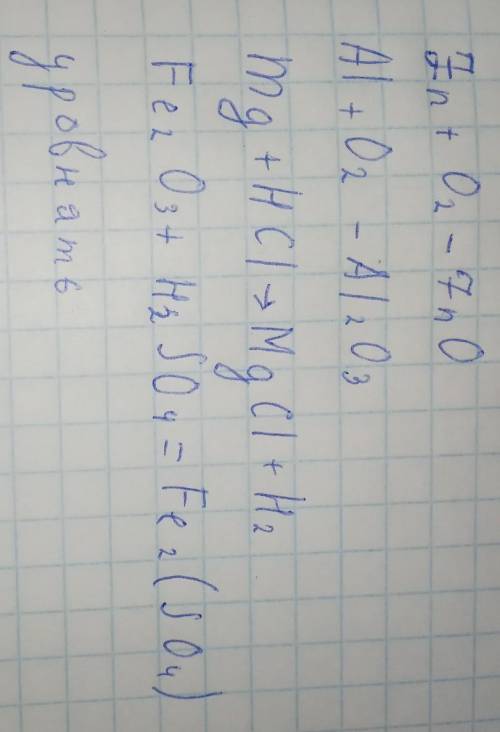 Zn + O₂ - ZnO
Al + O₂ - Al₂O₃
Mg + HCl → MgCl + H₂
Fe₂O₃ + H₂SO₄ = Fe₂(SO₄)
уровнять